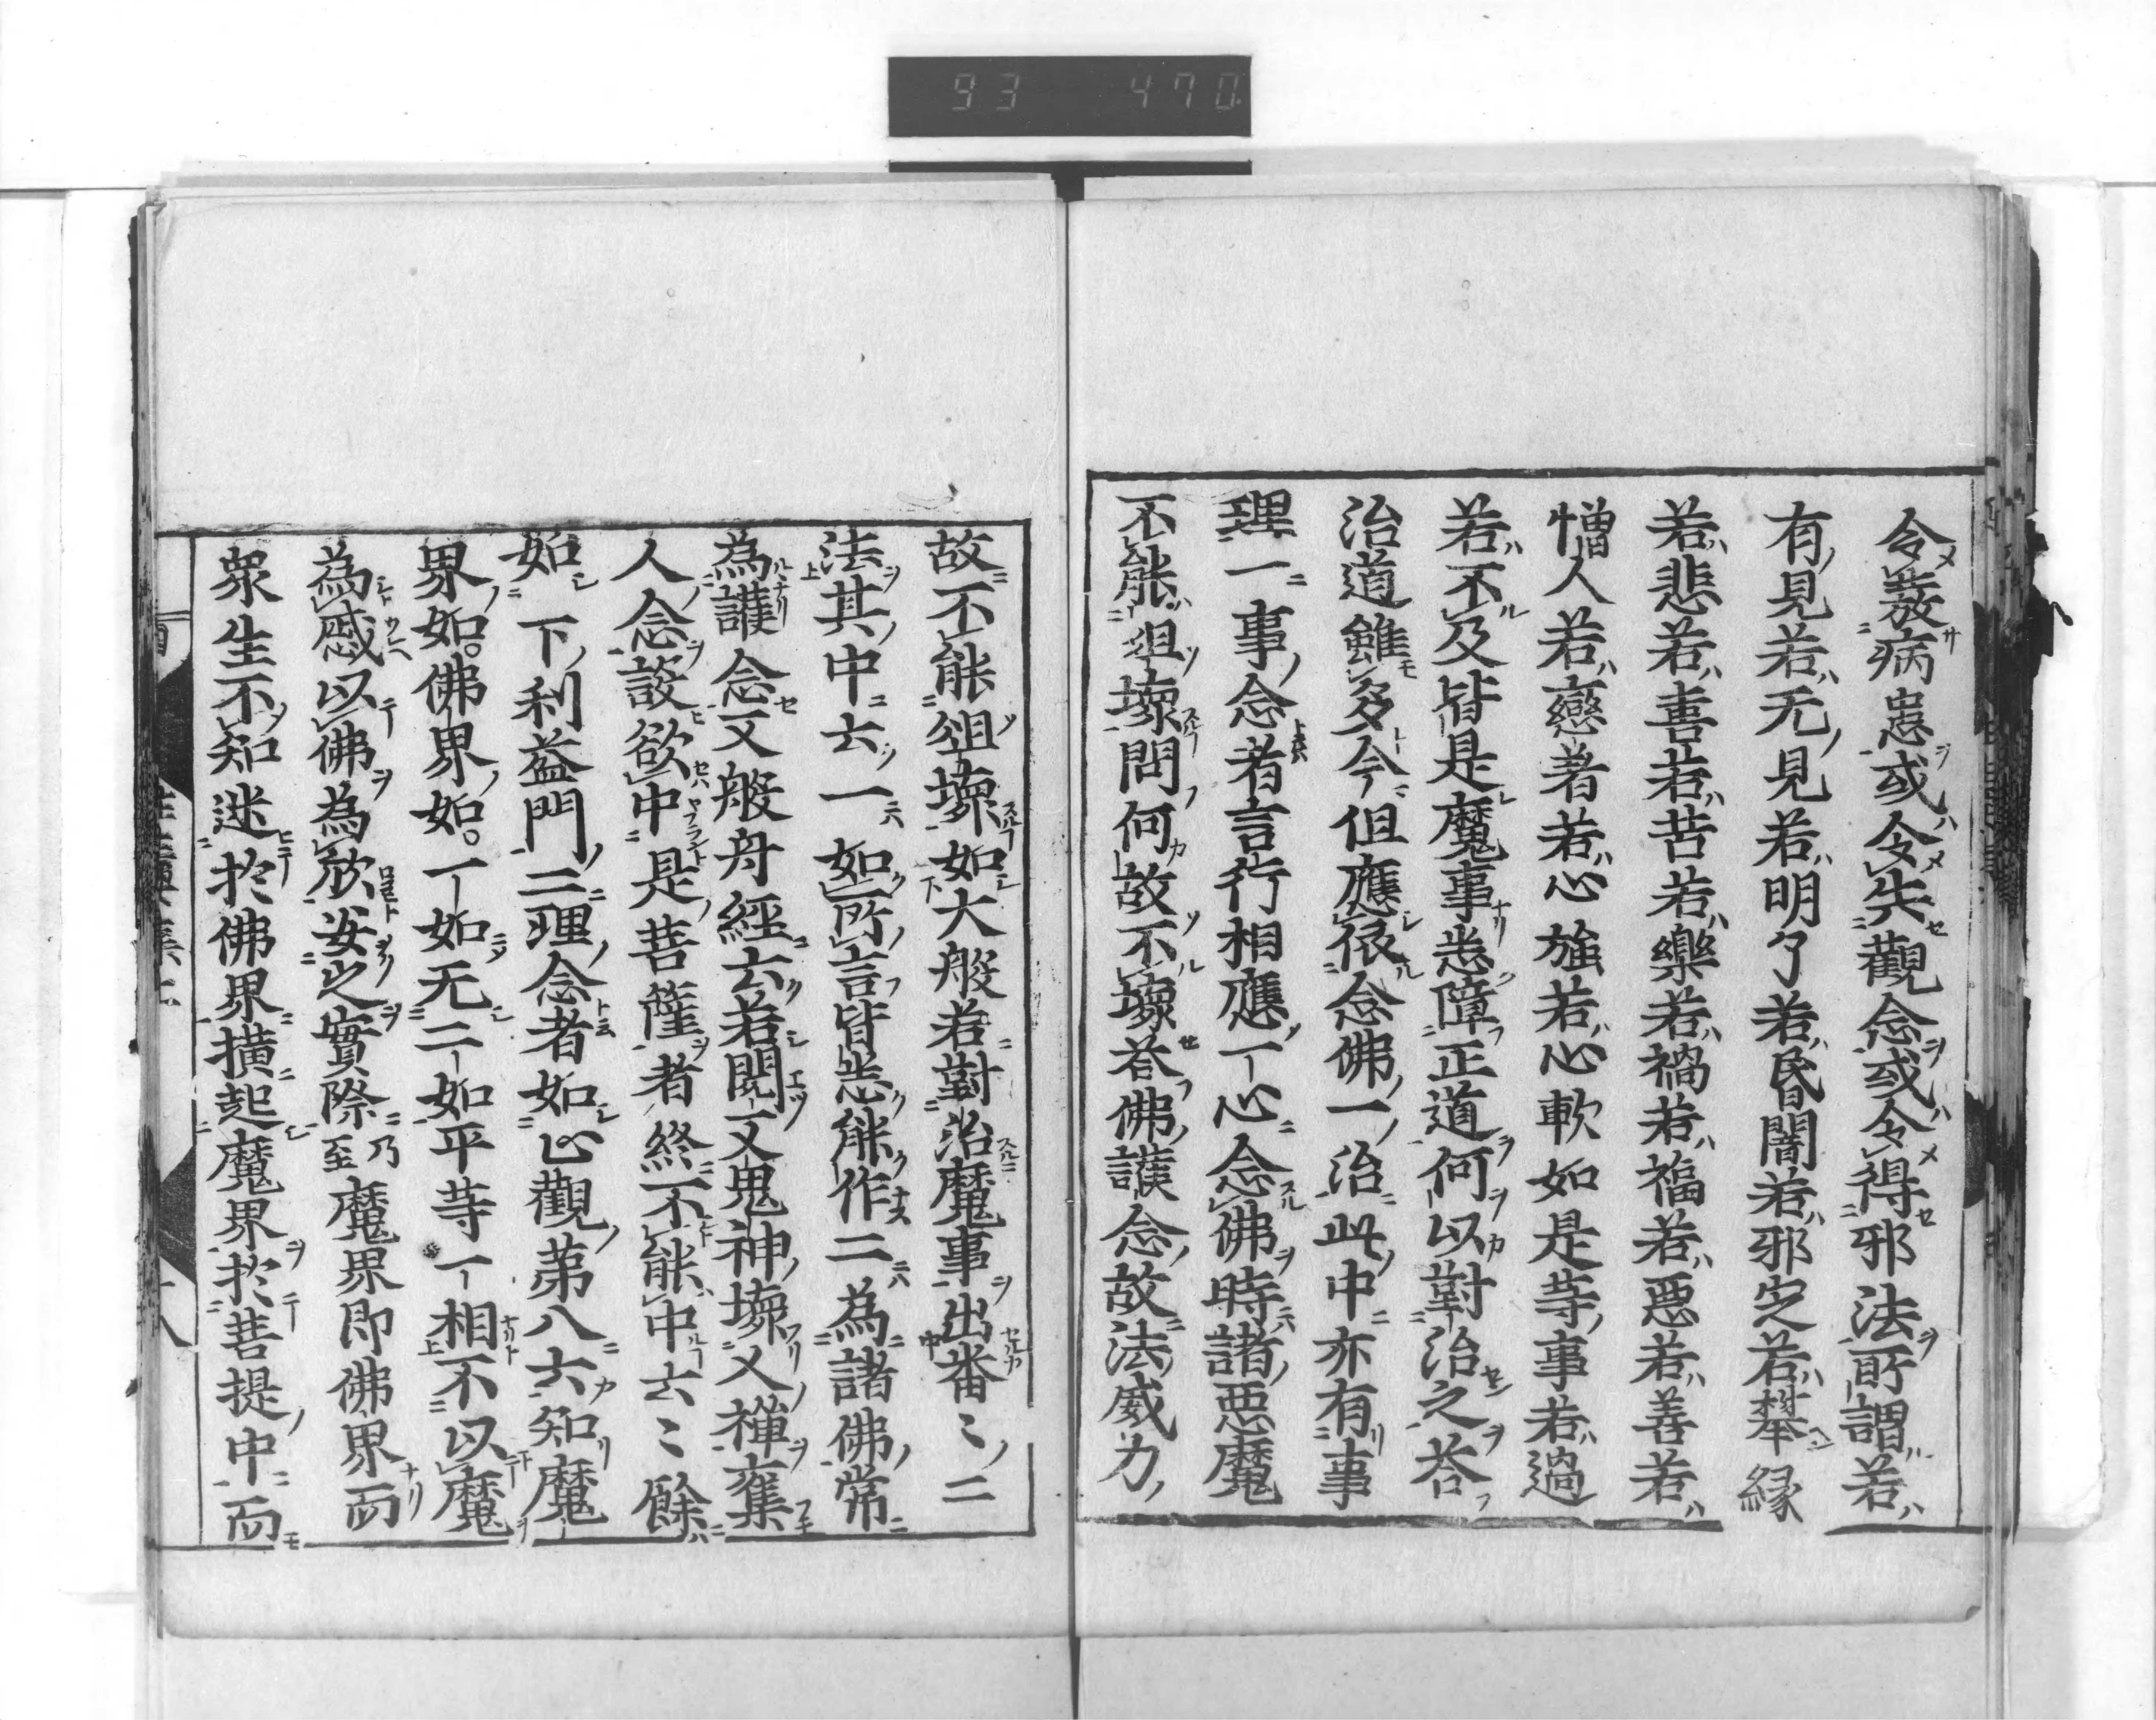 93 470
令發病患或令失觀念或令得邪法所謂若
有見若无見若明了若昏闇若邪定若攀縁
若悲若喜若苦若樂若禍若福若惡若善若
憎人若戀著若心強若心軟如是等事若過
若不及皆是魔事悉障正道何以對治之荅
治道雖多今但應依念佛一治此中亦有事
理一事念者言行相應一心念佛時諸惡魔
不能沮壞問何故不壞荅佛護念故法威力
故不能俎壞如大般若對治魔事出番〻二
法其中云一如所言皆悉能作二為諸佛常
為護念又般舟經云若閱叉鬼神壞人禪奪
人念設欲中是菩薩者終不能中云〻餘
如下利益門二理念者如止觀第八云知魔
界如。佛界如。一如无二一如平等一相不以魔
為慼以佛為欣安之實際乃至魔界即佛界而
衆生不知迷於佛界横起魔界於菩提中而